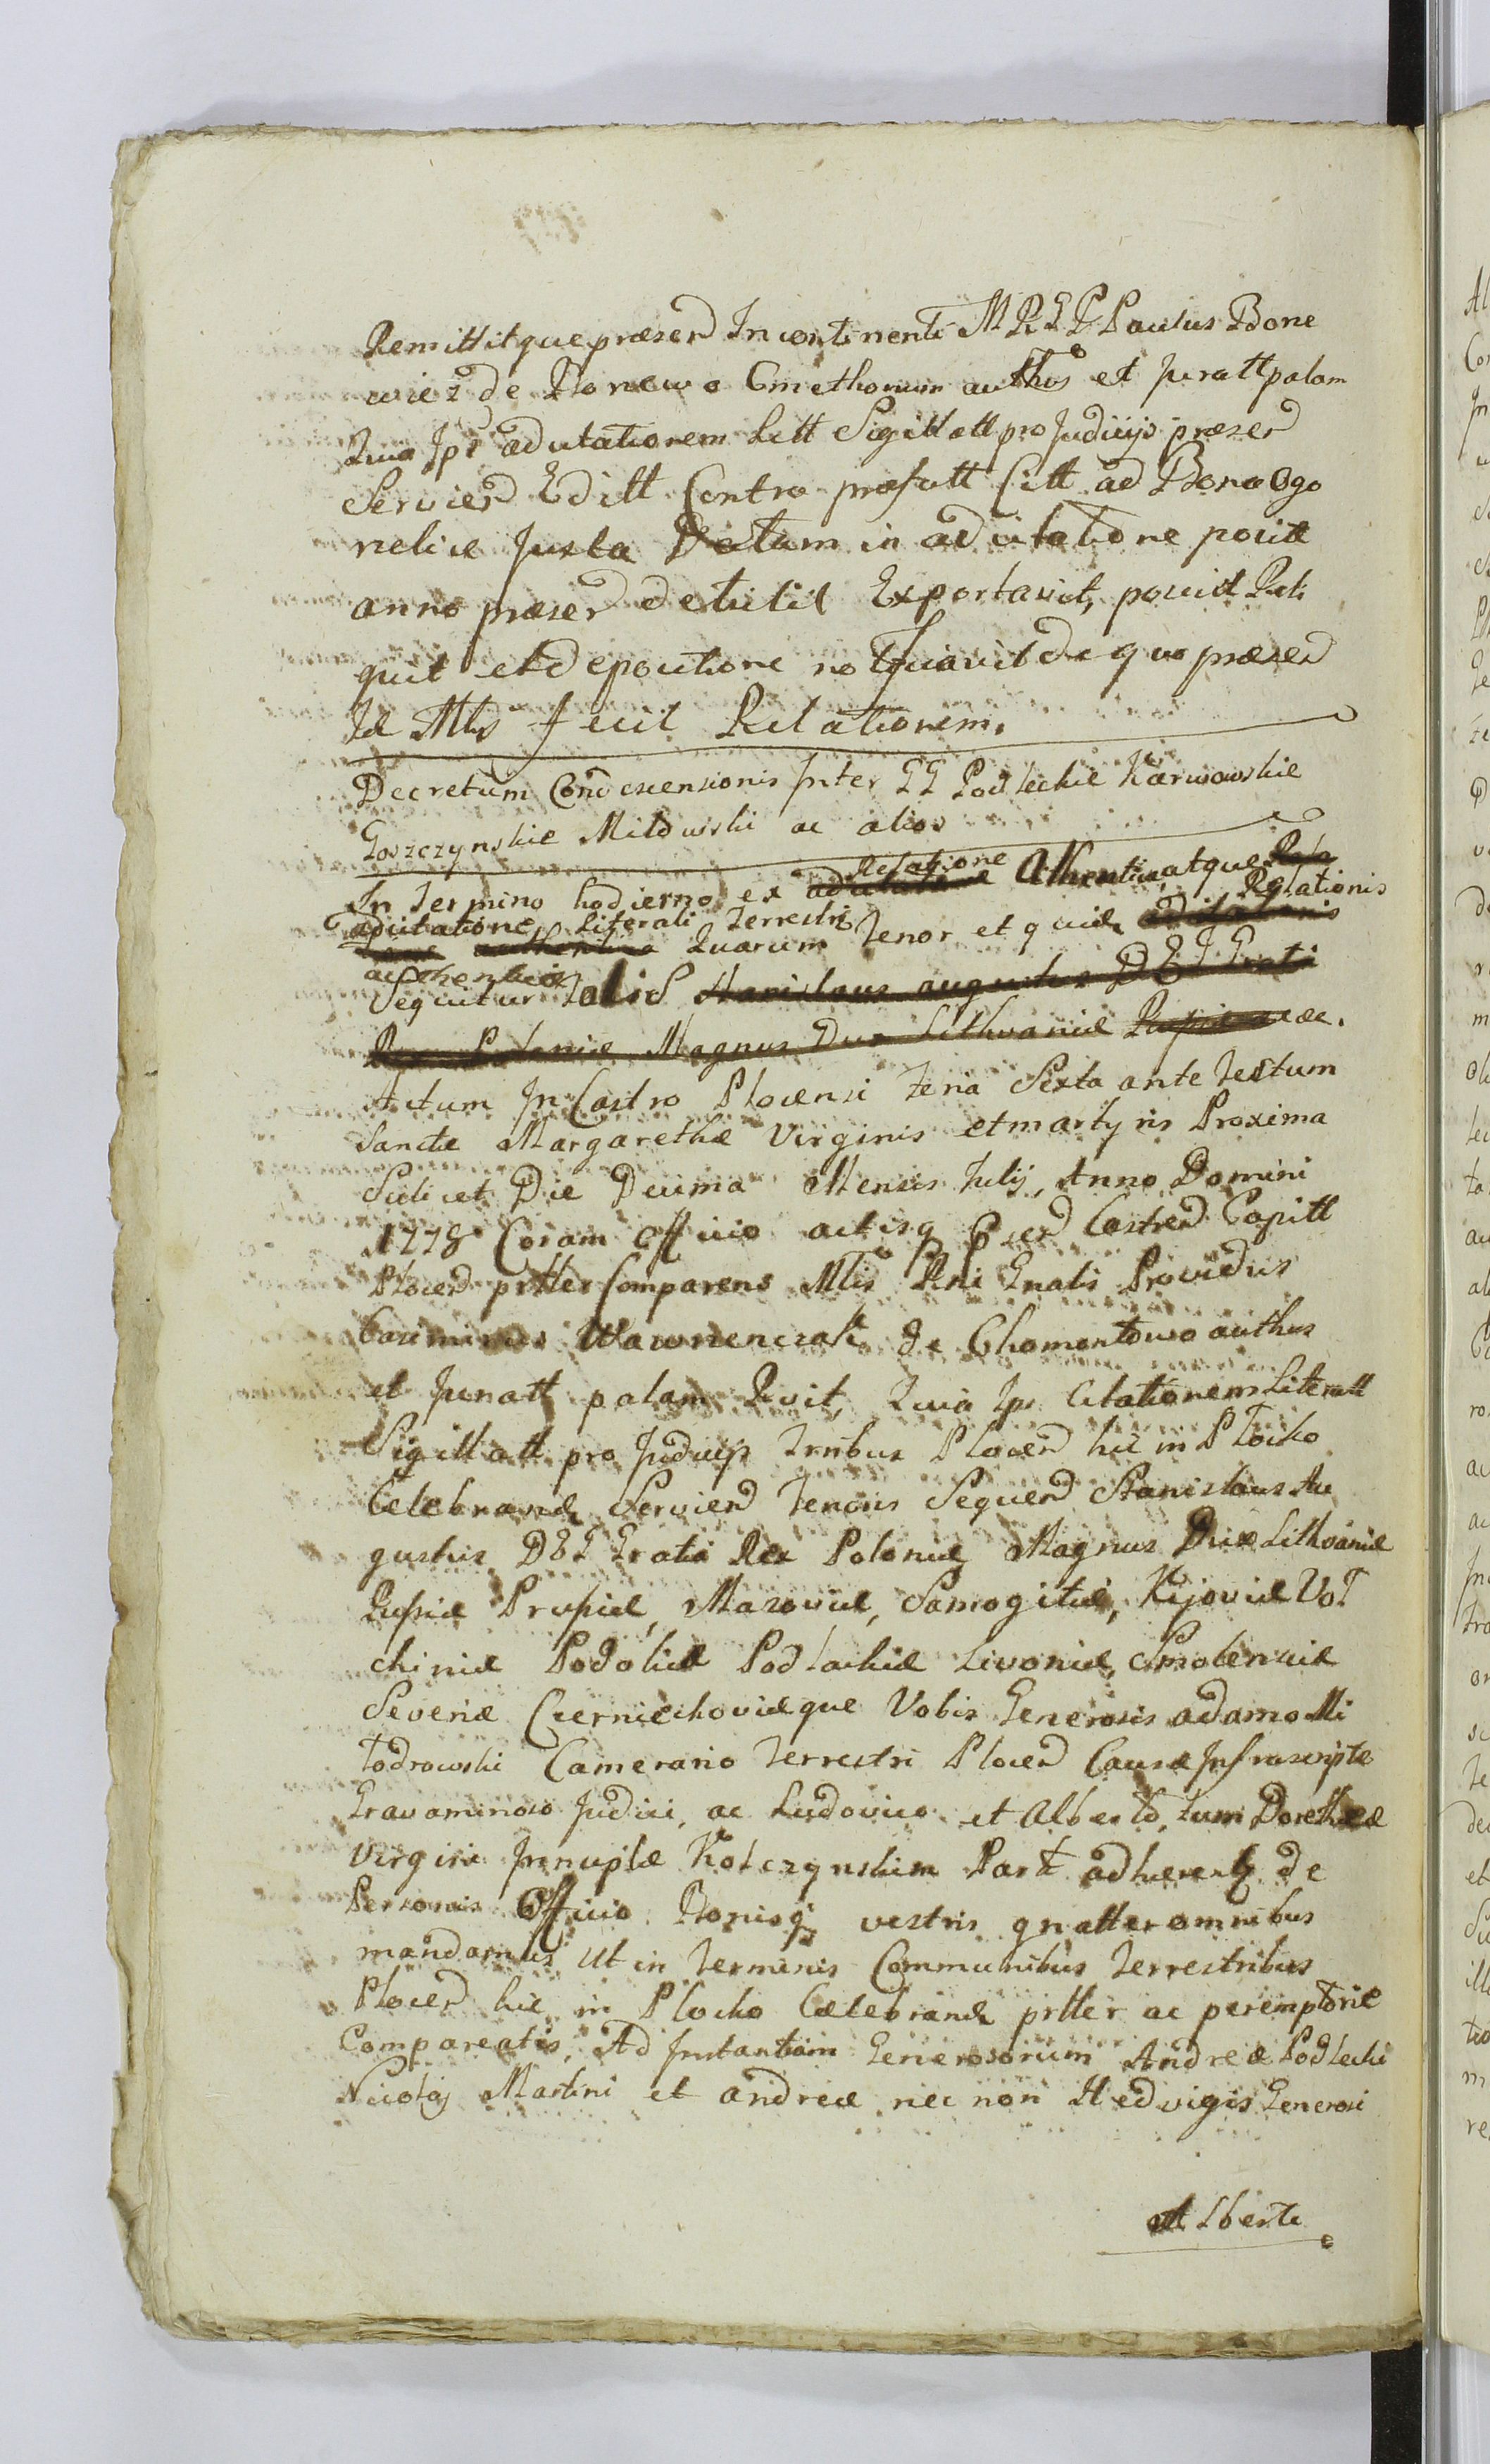 Remittitque præsend In continenti M R G P Paulus Bone
wicz de Bonewo Cmethonum authus et Juratt palam
Quia Ipe adcitationem Litt Sigillatt pro Judicijs præsend
Serviend Editt Contra præfatt Citt ad Bona Ogo
nelice Juxta Datum in adcitatione positæ
anno præsend detulit Exportavit, posuit Reli
quit et de positione notificavit de quo præsend
Id Mtis fecit Relationem.
Decretum Condescensionis Inter GG Podleckie Karwowskie
Goszczynskie Milewski ac alios
In Termino hodierno ex Relatione Athentica atque
adcitatione Literali Terrestri Relationis
Quarum Tenor et quidem
authenticæ
Sequitur talis Stanislaus augustus D E I Grati
Rex Poloniæ Magnus Dux Lithvaniæ Russiæ &c.
Actum In Castro Plocensi Feria Sexta ante Festum
Sanctæ Margarethæ Virginis et martyris Proxima
Scilicet Die Decima Mensis Julij, Anno Domini
1778 Coram Officio actisq pnd Castrend Capitt
Plocen prtler Comparens Mtis Rni Gnalis Providus
Casimirus Wawrzenczak de Chomentowo authus
et Juratt palam Rvit, Quia Ipe Citationem Literatt
Sigillatt pro Judicijs Trnibus Plocen hic in Plocko
Celebrand Serviend Tenoris Sequend Stanislaus Au
gustus D E I Gratia Rex Poloniæ Magnus Dux Lithvaniæ
Russiæ Prussiæ, Mazoviæ, Samogitiæ, Kijoviæ Vol
chiniæ Podoliæ Podlachiæ Livoniæ, Smolensciæ
Severiæ Czerniechoviæque Vobis Generosis adamo Mi
lodrowski Camerario Terrestri Plocen Causæ Infrascriptæ
Gravaminoso Judici, ac Ludovico et Alberto, tum Dorotheæ
Virgini Innuptæ Kolczynskim Part adhærent de
Personis Officio Bonisq vestris gnalter omnibus
mandamus, Ut in Terminis Communibus Terrestribus
Plocen hic in Plocko Celebrand prtler ac peremptorie
Compareatis, Ad Instantiam Generosorum Andreæ Podlecki
Nicolaj Martini et andreæ nec non Hedvigis Generosi
Alberti